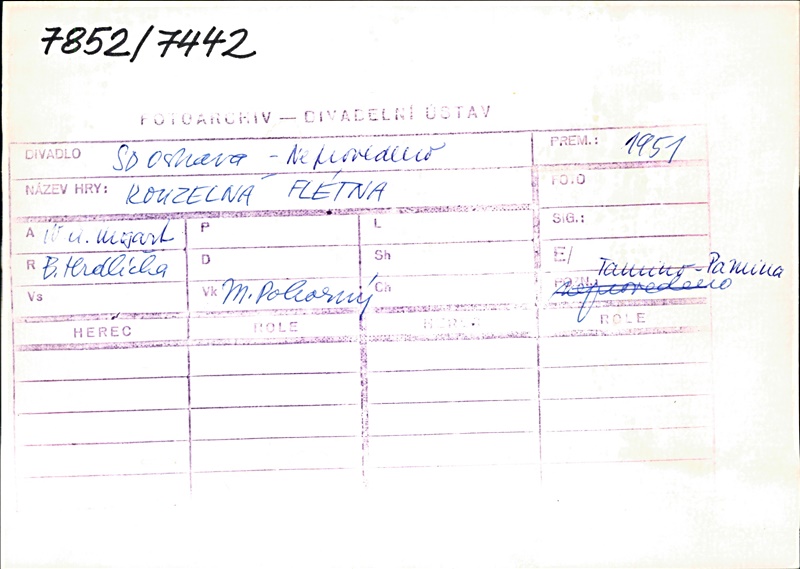 7852/7442
FOTOARCHIV — DIVADELNÍ ÚSTAV
DIVADLO SD Ostrava - Neprovedeno PREM.: 1951
NÁZEV HRY: KOUZELNÁ FLÉTNA FOTO
A W. A. Mozart P L SIG.:
R B. Hrdlička D Sh E/ Tamino-Pamina
Vs Vk M. Pokorný Ch POZN.: neprovedeno
HEREC ROLE HEREC ROLE